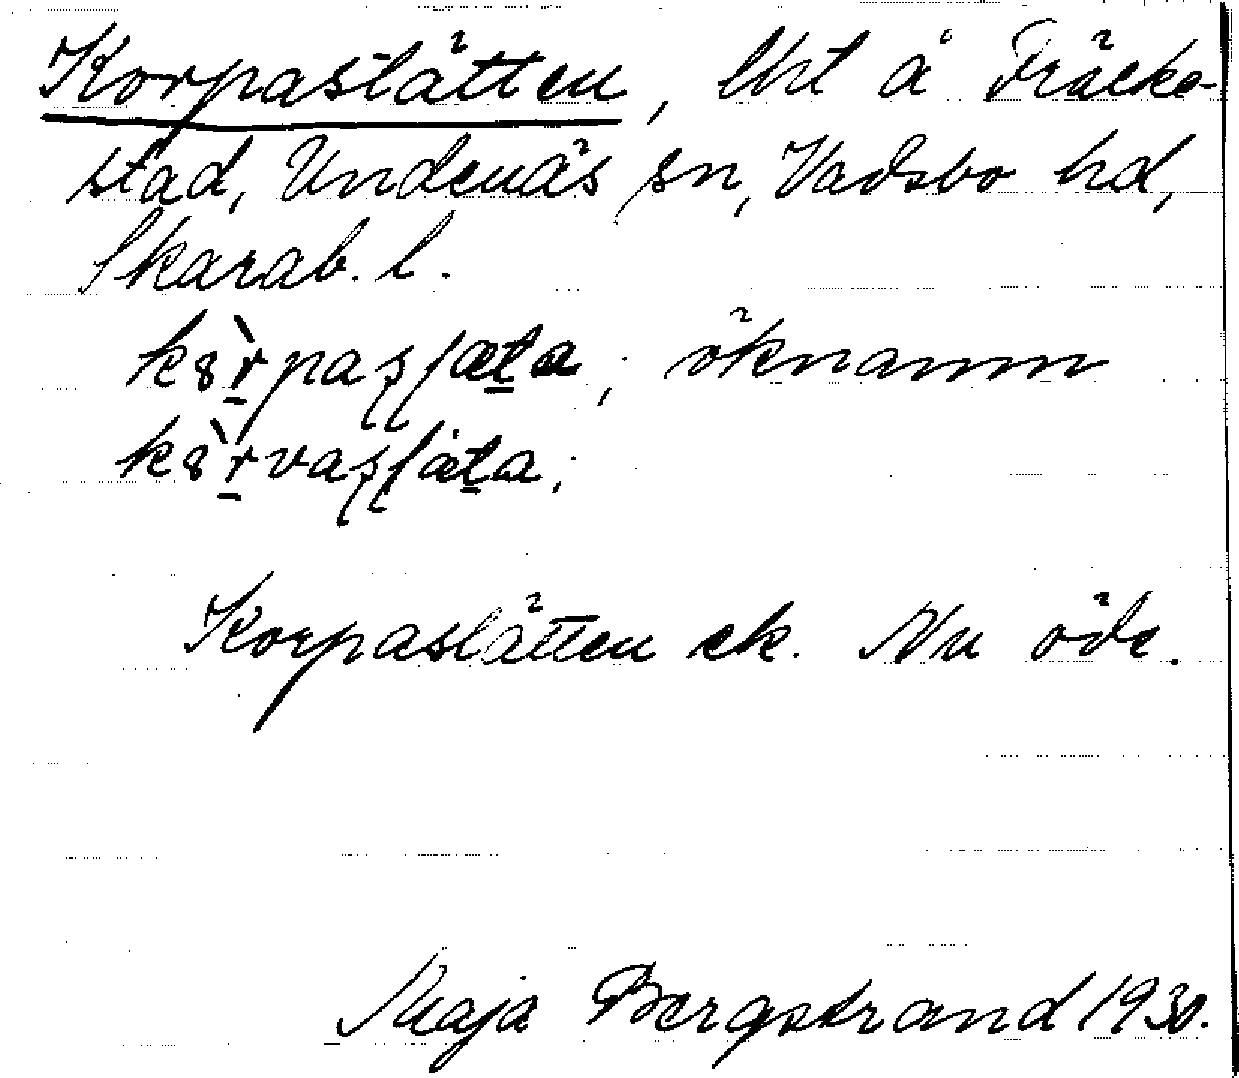 Korpaslätten, lht å Fräcke-
stad, Undenäs sn, Vadsbo hd,
Skarab. l.
öknamn
Korpaslätten ek. Nu öde.
Maja Bergstrand 1930.